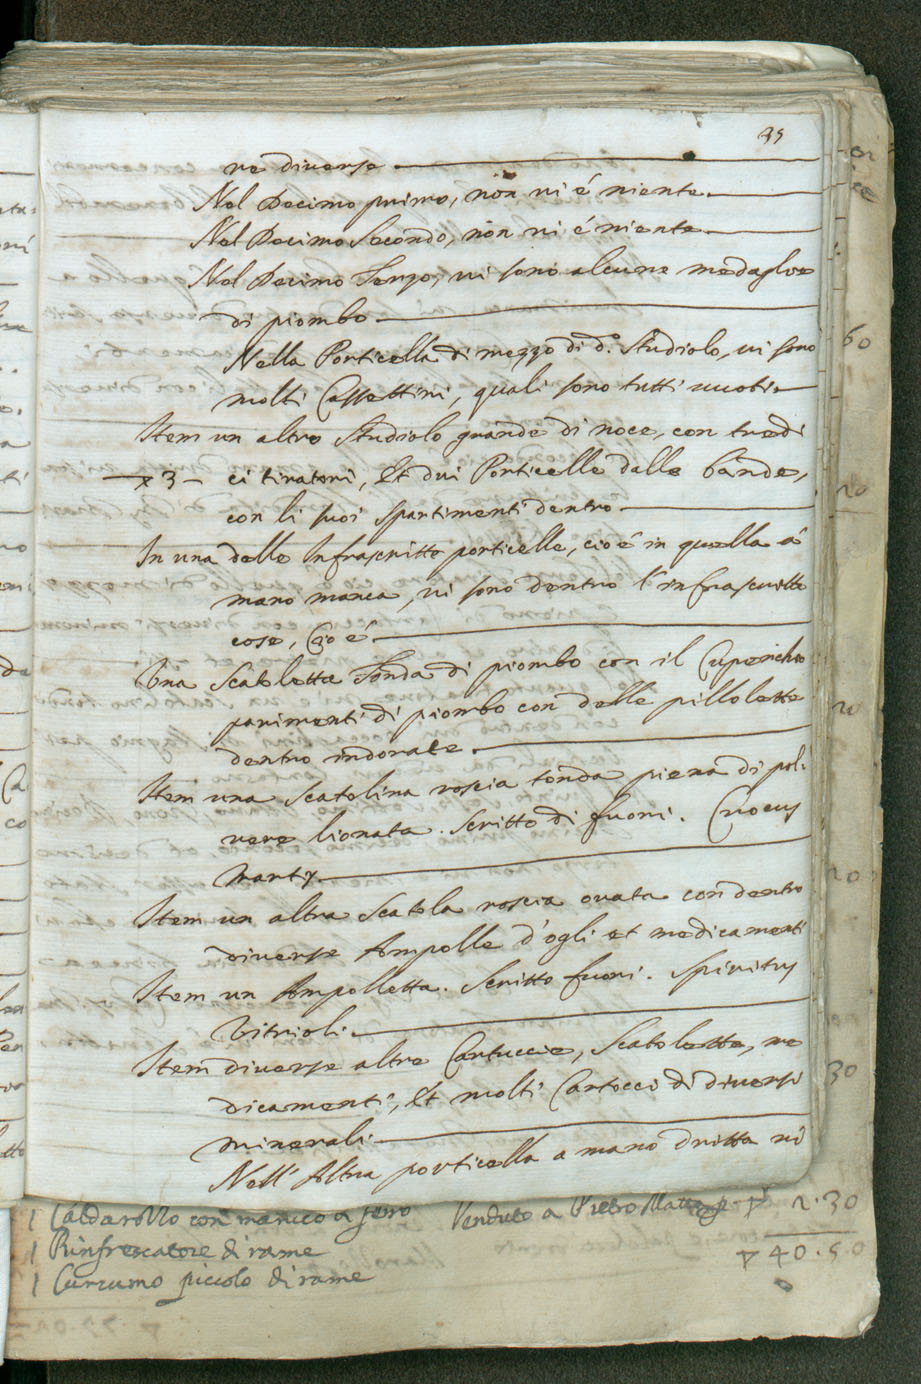 35
re diverse
Nel Decimo primo, non vi é niente.
Nel Decimo Secondo, non vi é niente.
Nel Decimo Terzo, vi sono alcune medaglie
di piombo
Nella Porticella di mezzo di d.º Studiolo, vi sono
molti Cassettini, quali sono tutti vuoti
Item un altro Studiolo grande di noce, con tredi
3 ci tiratori, Et dui Porticelle dalle bande,
con li suoi spartimenti dentro
In una delle Infrascritte porticelle, cioé in quella á
mano manca, vi sono dentro l'infrascritte
cose, Cio é
Una Scatoletta Tonda di piombo con il Cuperchio
parimenti di piombo con delle pillolette
dentro indorate.
Item una Scatolina roscia tonda piena di pol:
vere lionata. Scritto di fuori. Crocus
Marty
Item un altra Scatola roscia ovata con dentro
diverse Ampolle d'ogli et medicamenti
Item un Ampolletta. Scritto fuori. Spiritus
Vitrioli.
Item diverse altre Cartuccie, Scatolette, me
dicamenti, Et molti Cartocci di diversi
minerali
Nell'Altra porticella a mano dritta vi
1 Caldarozzo con manico a ferro Venduto a Pietro 2.30
1 Rinfrescatore di rame 40.50
1 piccolo di rame
60
20
20
20
30